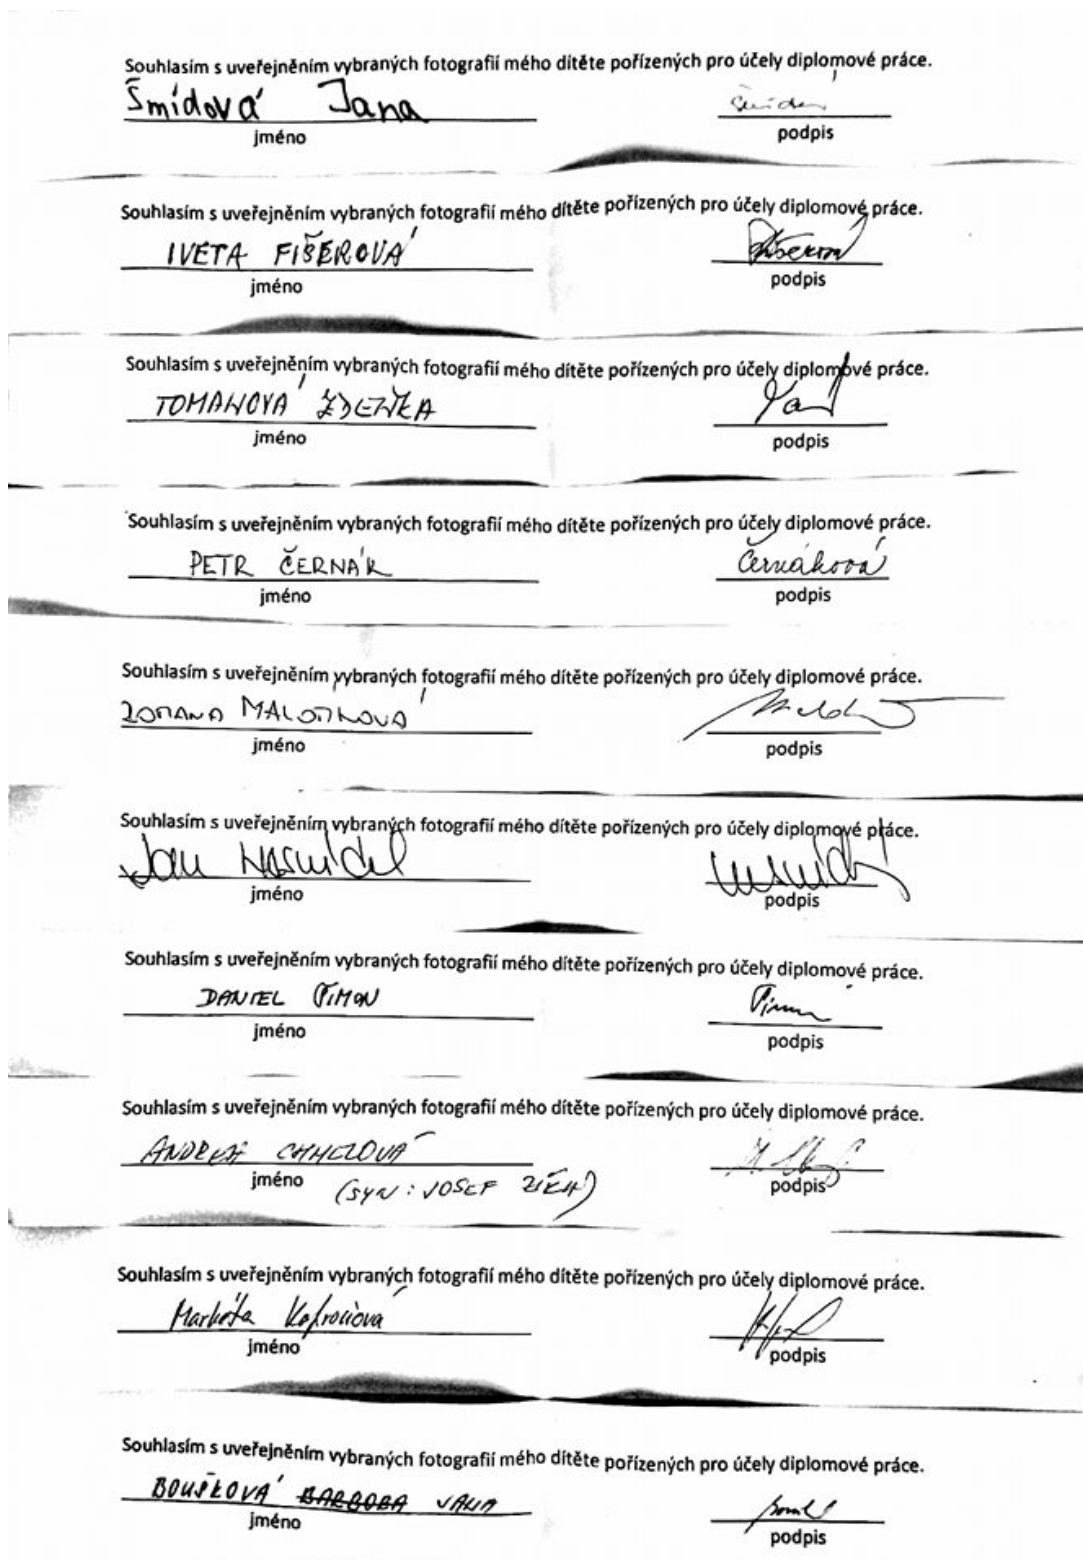 Souhlasím s uveřejněním vybraných fotografií mého dítěte pořízených pro účely diplomové práce.
Šmídová Jana
jméno podpis
Souhlasím s uveřejněním vybraných fotografií mého dítěte pořízených pro účely diplomové práce.
IVETA FIŠEROVÁ Fišerová
jméno podpis
Souhlasím s uveřejněním vybraných fotografií mého dítěte pořízených pro účely diplomové práce.
TOMANOVÁ ZDEŇKA
jméno podpis
Souhlasím s uveřejněním vybraných fotografií mého dítěte pořízených pro účely diplomové práce.
PETR ČERNÁK Černáková
jméno podpis
Souhlasím s uveřejněním vybraných fotografií mého dítěte pořízených pro účely diplomové práce.
jméno podpis
Souhlasím s uveřejněním vybraných fotografií mého dítěte pořízených pro účely diplomové práce.
Jan
jméno podpis
Souhlasím s uveřejněním vybraných fotografií mého dítěte pořízených pro účely diplomové práce.
DANIEL
jméno podpis
Souhlasím s uveřejněním vybraných fotografií mého dítěte pořízených pro účely diplomové práce.
ANDREA
jméno podpis
(SYN: JOSEF
Souhlasím s uveřejněním vybraných fotografií mého dítěte pořízených pro účely diplomové práce.
Markéta
jméno podpis
Souhlasím s uveřejněním vybraných fotografií mého dítěte pořízených pro účely diplomové práce.
BOUŠKOVÁ BARBORA JANA
jméno podpis